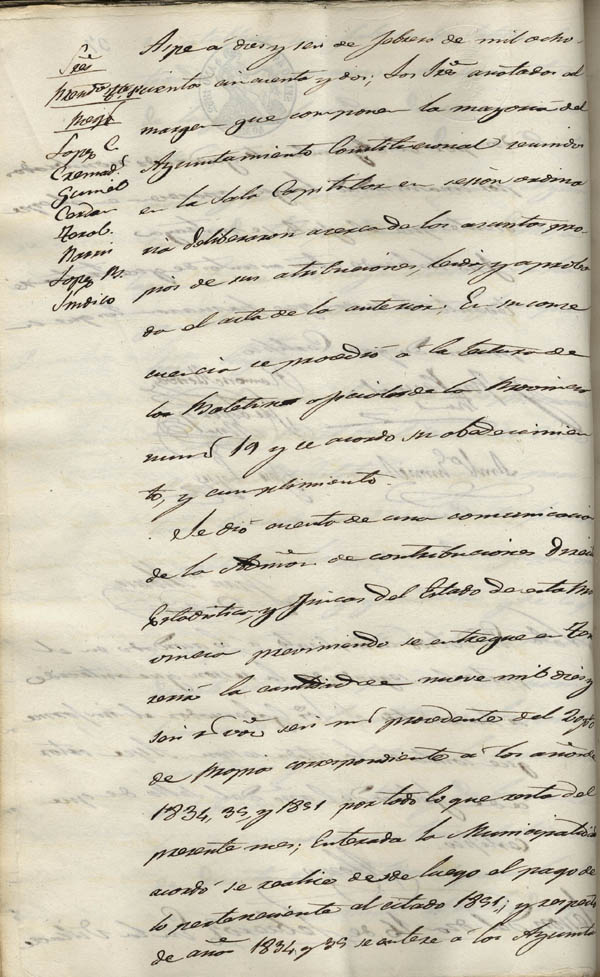 Sres
Presdte
López C.
Cremads
Gumiel
Cerdan
Terol
López M.
Sindico
Aspe á dies y seis de febrero de mil ocho-
cientos cincuenta y dos; Los Sres anotados al
margen que componen la mayoria del
Ayuntamiento Constitucional reunidos
en la Sala Capitular en sesion ordina
ria deliberaron acerca de los asuntos pro-
pios de sus atribuciones, leida y aproba
da el acta de la anterior; En su conse
cuencia se procedió á la lectura de
los Boletines oficiales de la Provincia
num. 19 y se acordo su obedecimien
to, y cumplimiento.
Se dió cuenta de una comunicacion
de la Admon de contribuciones Direc
Estadistica, y Fincas del Estado de esta Pro
vincia previniendo se entregue en Teso
reria la cantidad de nueve mil dies y
seis rs von seis ms procedente del
de Propios correspondiente á los años de
1834, 35, y 1851 por todo lo que resta del
presente mes; Enterada la Municipalidad
acordó se realice desde luego el pago de
lo perteneciente al citado 1851; y respecto
de años 1834, y 35 se entere á los Ayunta